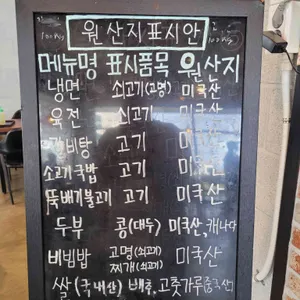 원산지표시안
메뉴명 표시품목 원산지
냉면 쇠고기(고명) 미국산
육전 쇠고기 미국산
갈비탕 고기 미국산
소고기국밥 고기 미국산
뚝배기불고기 고기 미국산
두부 콩(대두) 미국산, 캐나다
비빔밥 고명(쇠고기) 미국산
찌개(쇠고기)
쌀(국내산) 배추, 고추가루중국산